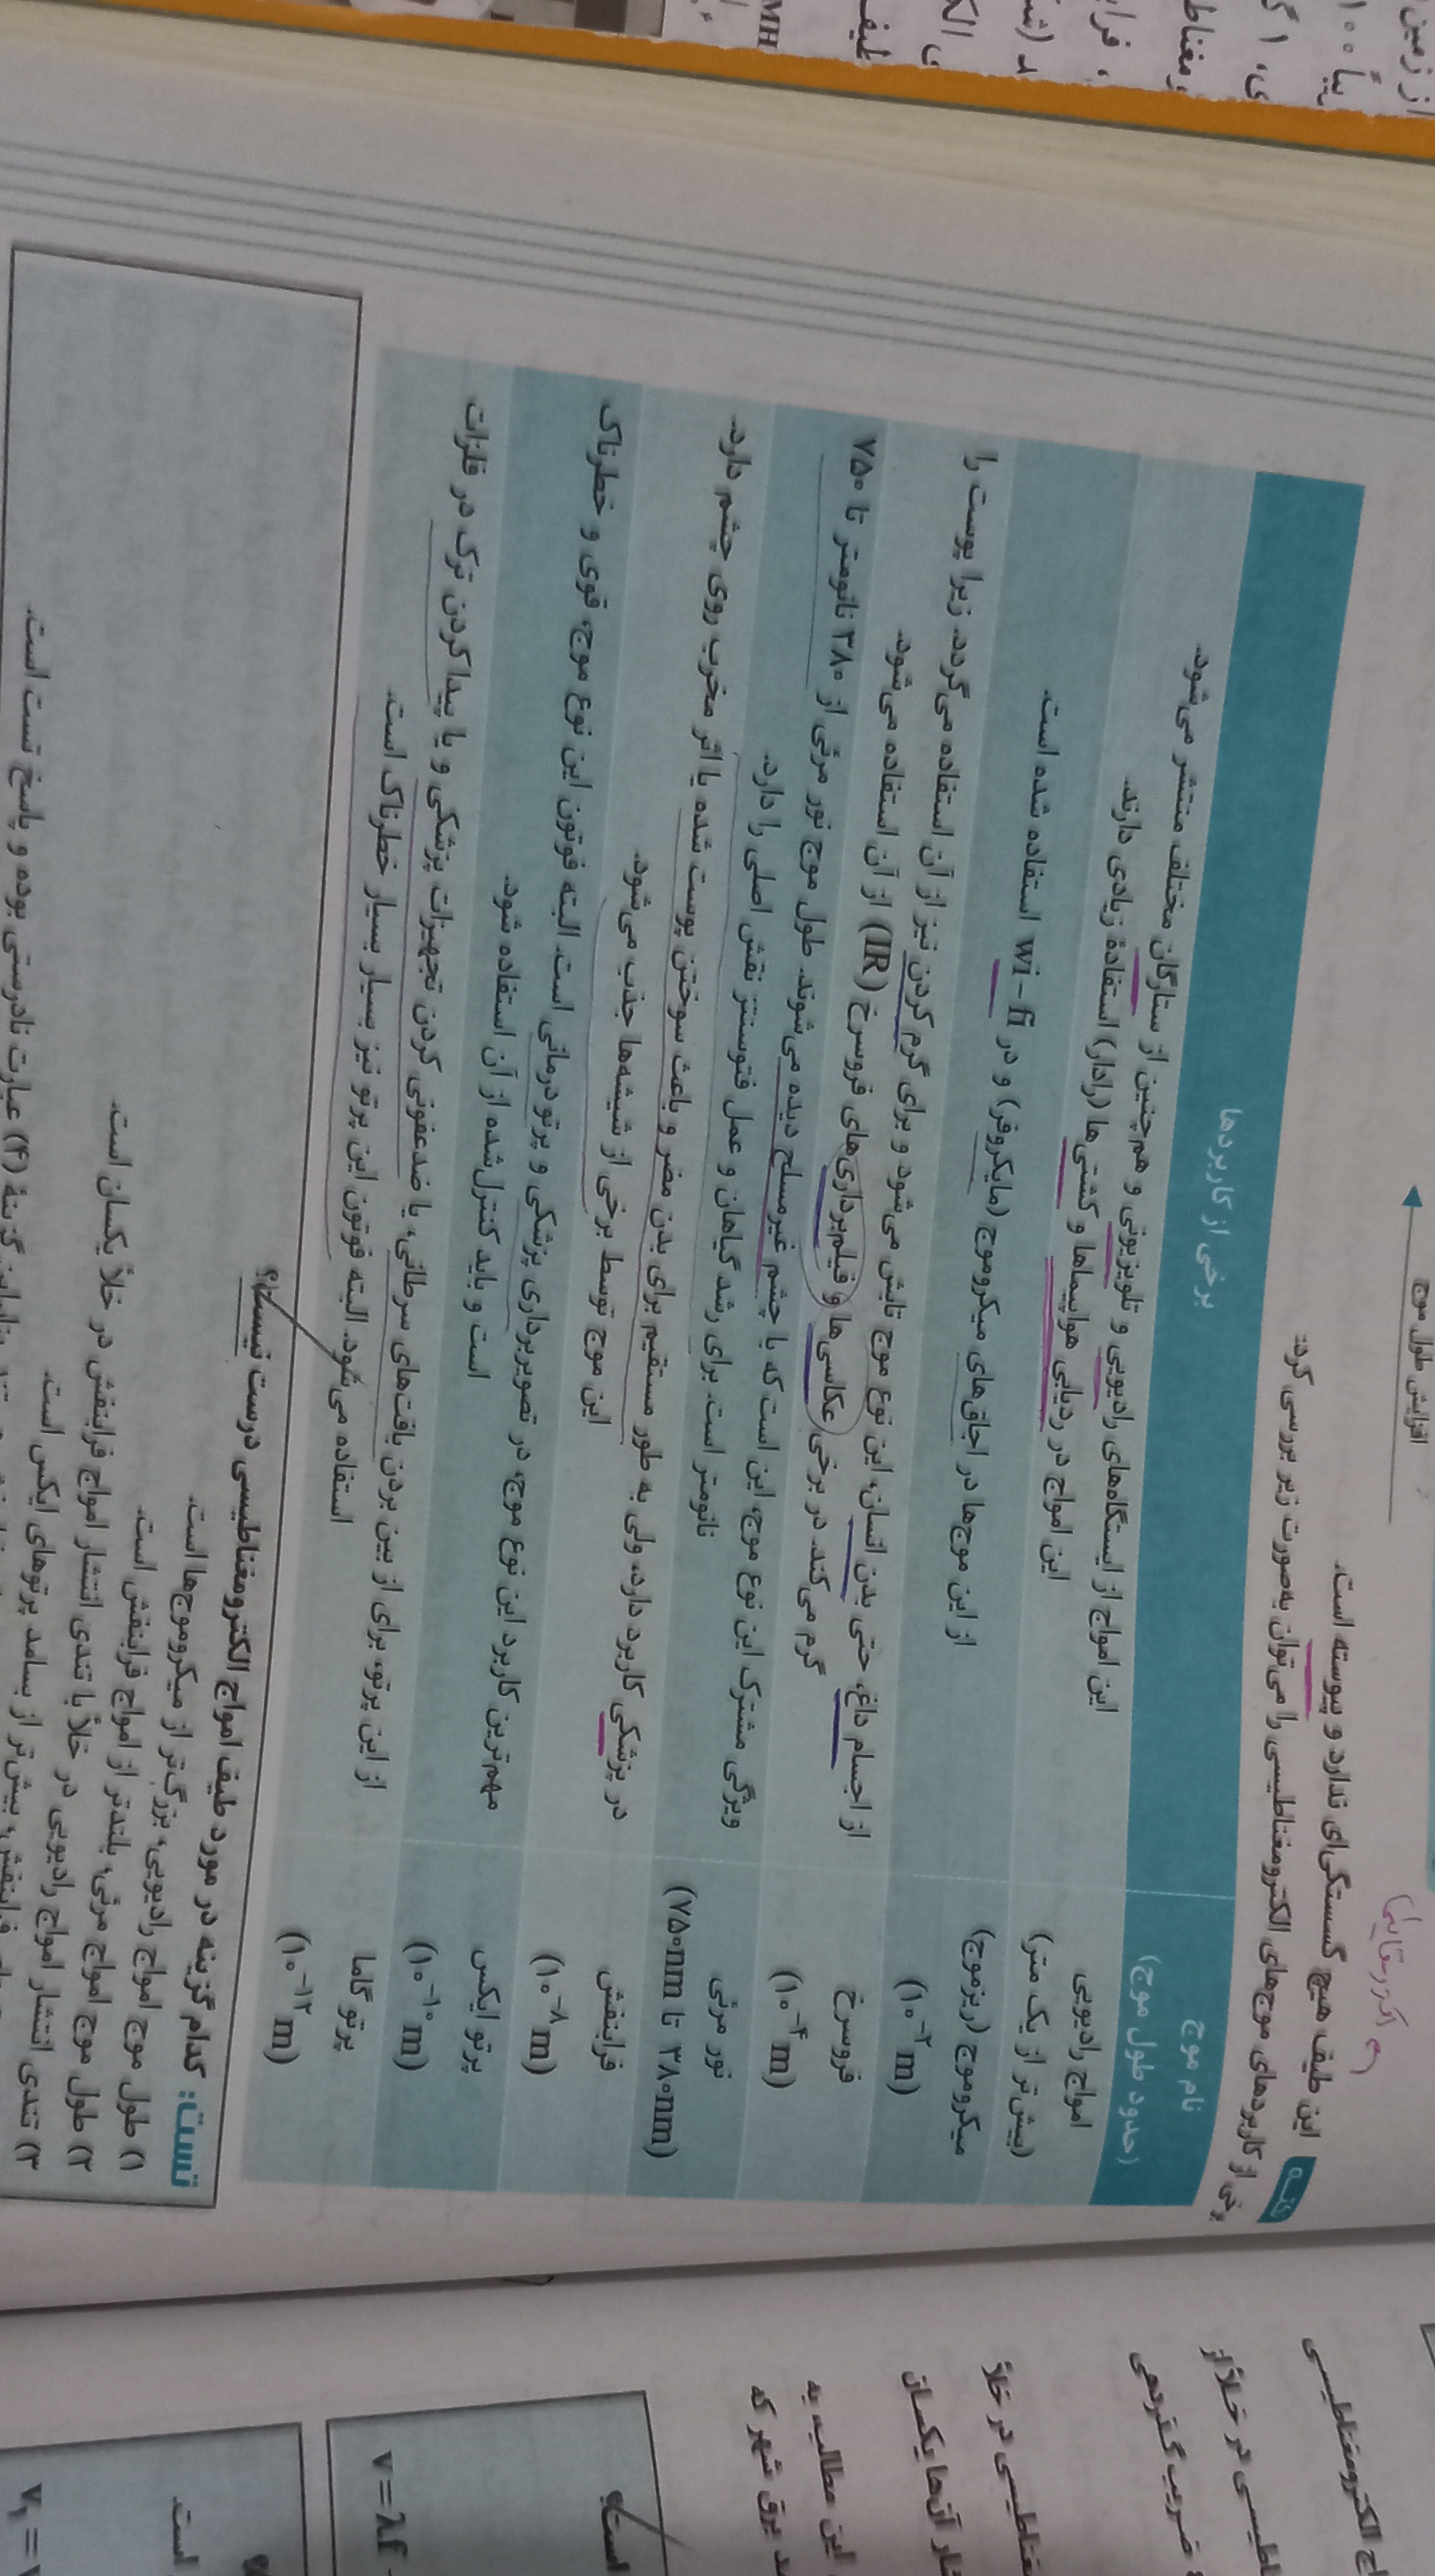 افزایش طول موج
این طیف هیچ گسستگی‌ای ندارد و پیوسته است.
برخی از کاربردهای موج‌های الکترومغناطیسی را می‌توان به‌صورت زیر بررسی کرد:
نام موج
(حدود طول موج)
برخی از کاربردها
امواج رادیویی
(بیش‌تر از یک متر)
این امواج از ایستگاه‌های رادیویی و تلویزیونی و هم‌چنین از ستارگان مختلف منتشر می‌شود.
این امواج در ردیابی هواپیماها و کشتی‌ها (رادار) استفادهٔ زیادی دارند.
میکروموج (ریزموج)
(۱۰⁻² m)
از این موج‌ها در اجاق‌های میکروموج (مایکروفر) و در wi – fi استفاده شده است.
فروسرخ
(۱۰⁻⁴ m)
از اجسام داغ، حتی بدن انسان، این نوع موج تابش می‌شود و برای گرم کردن نیز از آن استفاده می‌گردد. زیرا پوست را
گرم می‌کند. در برخی عکاسی‌ها و فیلم‌برداری‌های فروسرخ (IR) از آن استفاده می‌شود.
نور مرئی
(۳۸۰nm تا ۷۵۰nm)
ویژگی مشترک این نوع موج، این است که با چشم غیرمسلح دیده می‌شوند. طول موج نور مرئی از ۳۸۰ نانومتر تا ۷۵۰
نانومتر است. برای رشد گیاهان و عمل فتوسنتز نقش اصلی را دارد.
فرابنفش
(۱۰⁻⁸ m)
در پزشکی کاربرد دارد، ولی به طور مستقیم برای بدن مضر و باعث سوختن پوست شده یا اثر مخرب روی چشم دارد.
این موج توسط برخی از شیشه‌ها جذب می‌شود.
پرتو ایکس
(۱۰⁻¹⁰ m)
مهم‌ترین کاربرد این نوع موج، در تصویربرداری پزشکی و پرتودرمانی است. البته فوتون این نوع موج، قوی و خطرناک
است و باید کنترل‌شده از آن استفاده شود.
پرتو گاما
(۱۰⁻¹² m)
از این پرتو، برای از بین بردن بافت‌های سرطانی، یا ضدعفونی کردن تجهیزات پزشکی و یا پیدا کردن ترک در فلزات
استفاده می‌شود. البته فوتون این پرتو نیز بسیار بسیار خطرناک است.
تست: کدام گزینه در مورد طیف امواج الکترومغناطیسی درست نیست؟
۱) طول موج امواج رادیویی، بزرگ‌تر از میکروموج‌ها است.
۲) طول موج امواج مرئی، بلندتر از امواج فرابنفش است.
۳) تندی انتشار امواج رادیویی در خلأ با تندی انتشار امواج فرابنفش در خلأ یکسان است.
بیش‌تر از بسامد پرتوهای ایکس است.
گزینهٔ (۴) عبارت نادرستی بوده و پاسخ تست است.
v = λf